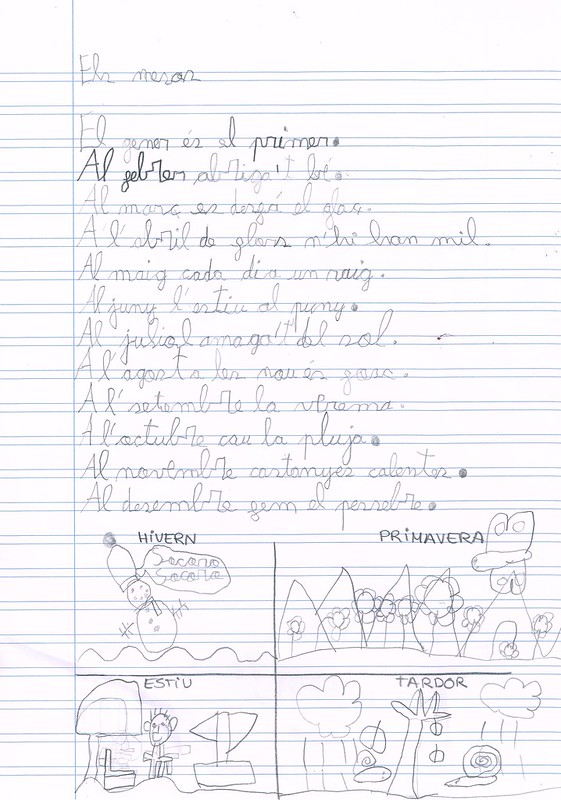 Els mesos
El gener és el primer.
Al gebrer abriga't bé.
Al març es dergá el glaç.
A l'abril de glors n'hi han mil.
Al maig cada dia un raig.
Al juny l'estiu al puny.
Al juliol amaga't del sol.
A l'agost a les nou és gosc.
A l'setembre la verema.
A l'octubre cau la pluja.
Al novembre castanyes calentes.
Al desembre gem el pessebre.
HIVERN
PRIMAVERA
Socoro
Socoro
ESTIU
TARDOR